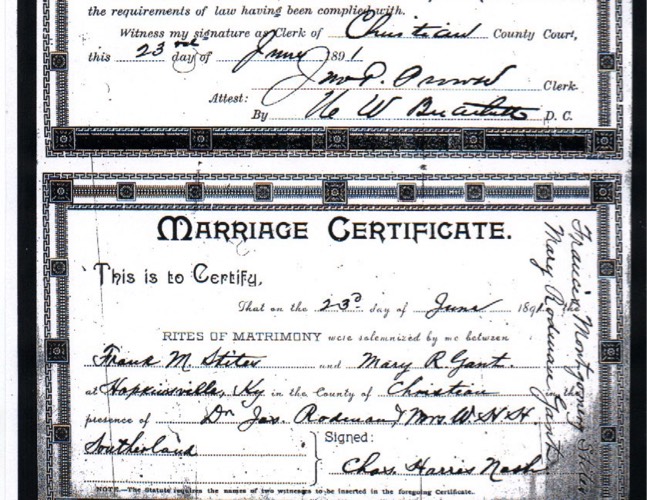 the requirements of law having been complied with.
Witness my signature as Clerk of Christian County Court,
this 23rd day of June 1891
Jno. P. Prowse Clerk.
Attest:
By W D. C.
MARRIAGE CERTIFICATE.
This is to Certify,
That on the 23d day of June 1891 the
RITES OF MATRIMONY were solemnized by me between
Frank M Stites and Mary R Gant.
at Hopkinsville, Ky in the County of Christian in the
presence of Dr Jas. Rodman & Mrs W. H. H.
Southerland
Signed:
Chas. Harris Nash
NOTE.—The Statute requires the names of two witnesses to be inserted in the foregoing Certificate.
Francis Montgomery Stites
Mary Rodman Gant